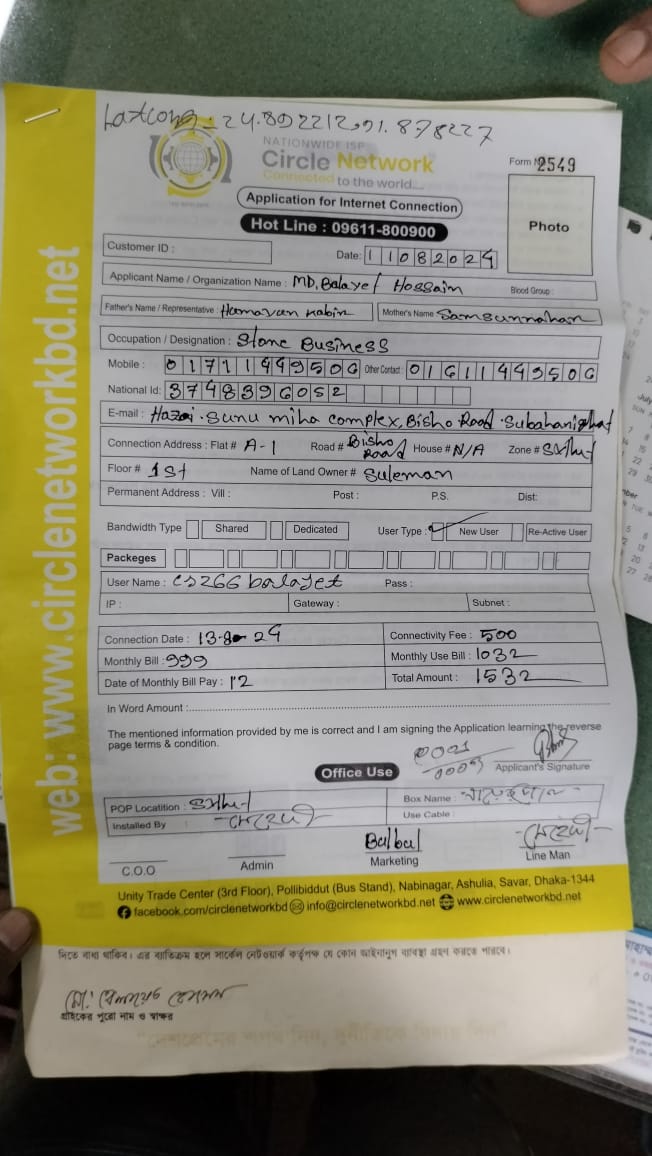 Latlong: 24.892212, 91.878227
NATIONWIDE ISP
Circle Network
Connected to the world....
Form N 2549
Application for Internet Connection
Hot Line : 09611-800900
Photo
Customer ID :
Date: 11082024
Applicant Name / Organization Name : MD, Balayet Hossain Blood Group :
Father's Name / Representative : Mother's Name Samsunnahar
Occupation / Designation : Stone Business
Mobile : 01711449506 Other Contact : 01611449506
National Id: 3748396052
E-mail : Sunu miha complex, Bisho Road Subahanighat
Connection Address : Flat # A-1 Road # Bisho Road House # N/A Zone #
Floor # 1st Name of Land Owner # Suleman
Permanent Address : Vill : Post : P.S. Dist:
Bandwidth Type Shared Dedicated User Type : New User Re-Active User
Packeges
User Name : cs266balayet Pass :
IP : Gateway : Subnet :
Connection Date : 13-8-24 Connectivity Fee : 500
Monthly Bill : 999 Monthly Use Bill : 1032
Date of Monthly Bill Pay : 12 Total Amount : 1532
In Word Amount :
The mentioned information provided by me is correct and I am signing the Application learning the reverse
page terms & condition.
Applicant's Signature
Office Use
POP Locatition : Box Name :
Installed By : Use Cable :
Bulbul
C.O.O Admin Marketing Line Man
Unity Trade Center (3rd Floor), Pollibiddut (Bus Stand), Nabinagar, Ashulia, Savar, Dhaka-1344
facebook.com/circlenetworkbd info@circlenetworkbd.net www.circlenetworkbd.net
web: www.circlenetworkbd.net
দিতে বাধ্য থাকিব। এর ব্যতিক্রম হলে সার্কেল নেটওয়ার্ক কর্তৃপক্ষ যে কোন আইনানুগ ব্যবস্থা গ্রহণ করতে পারবে।
মো: বেলায়েত হোসেন
গ্রাহকের পুরো নাম ও স্বাক্ষর